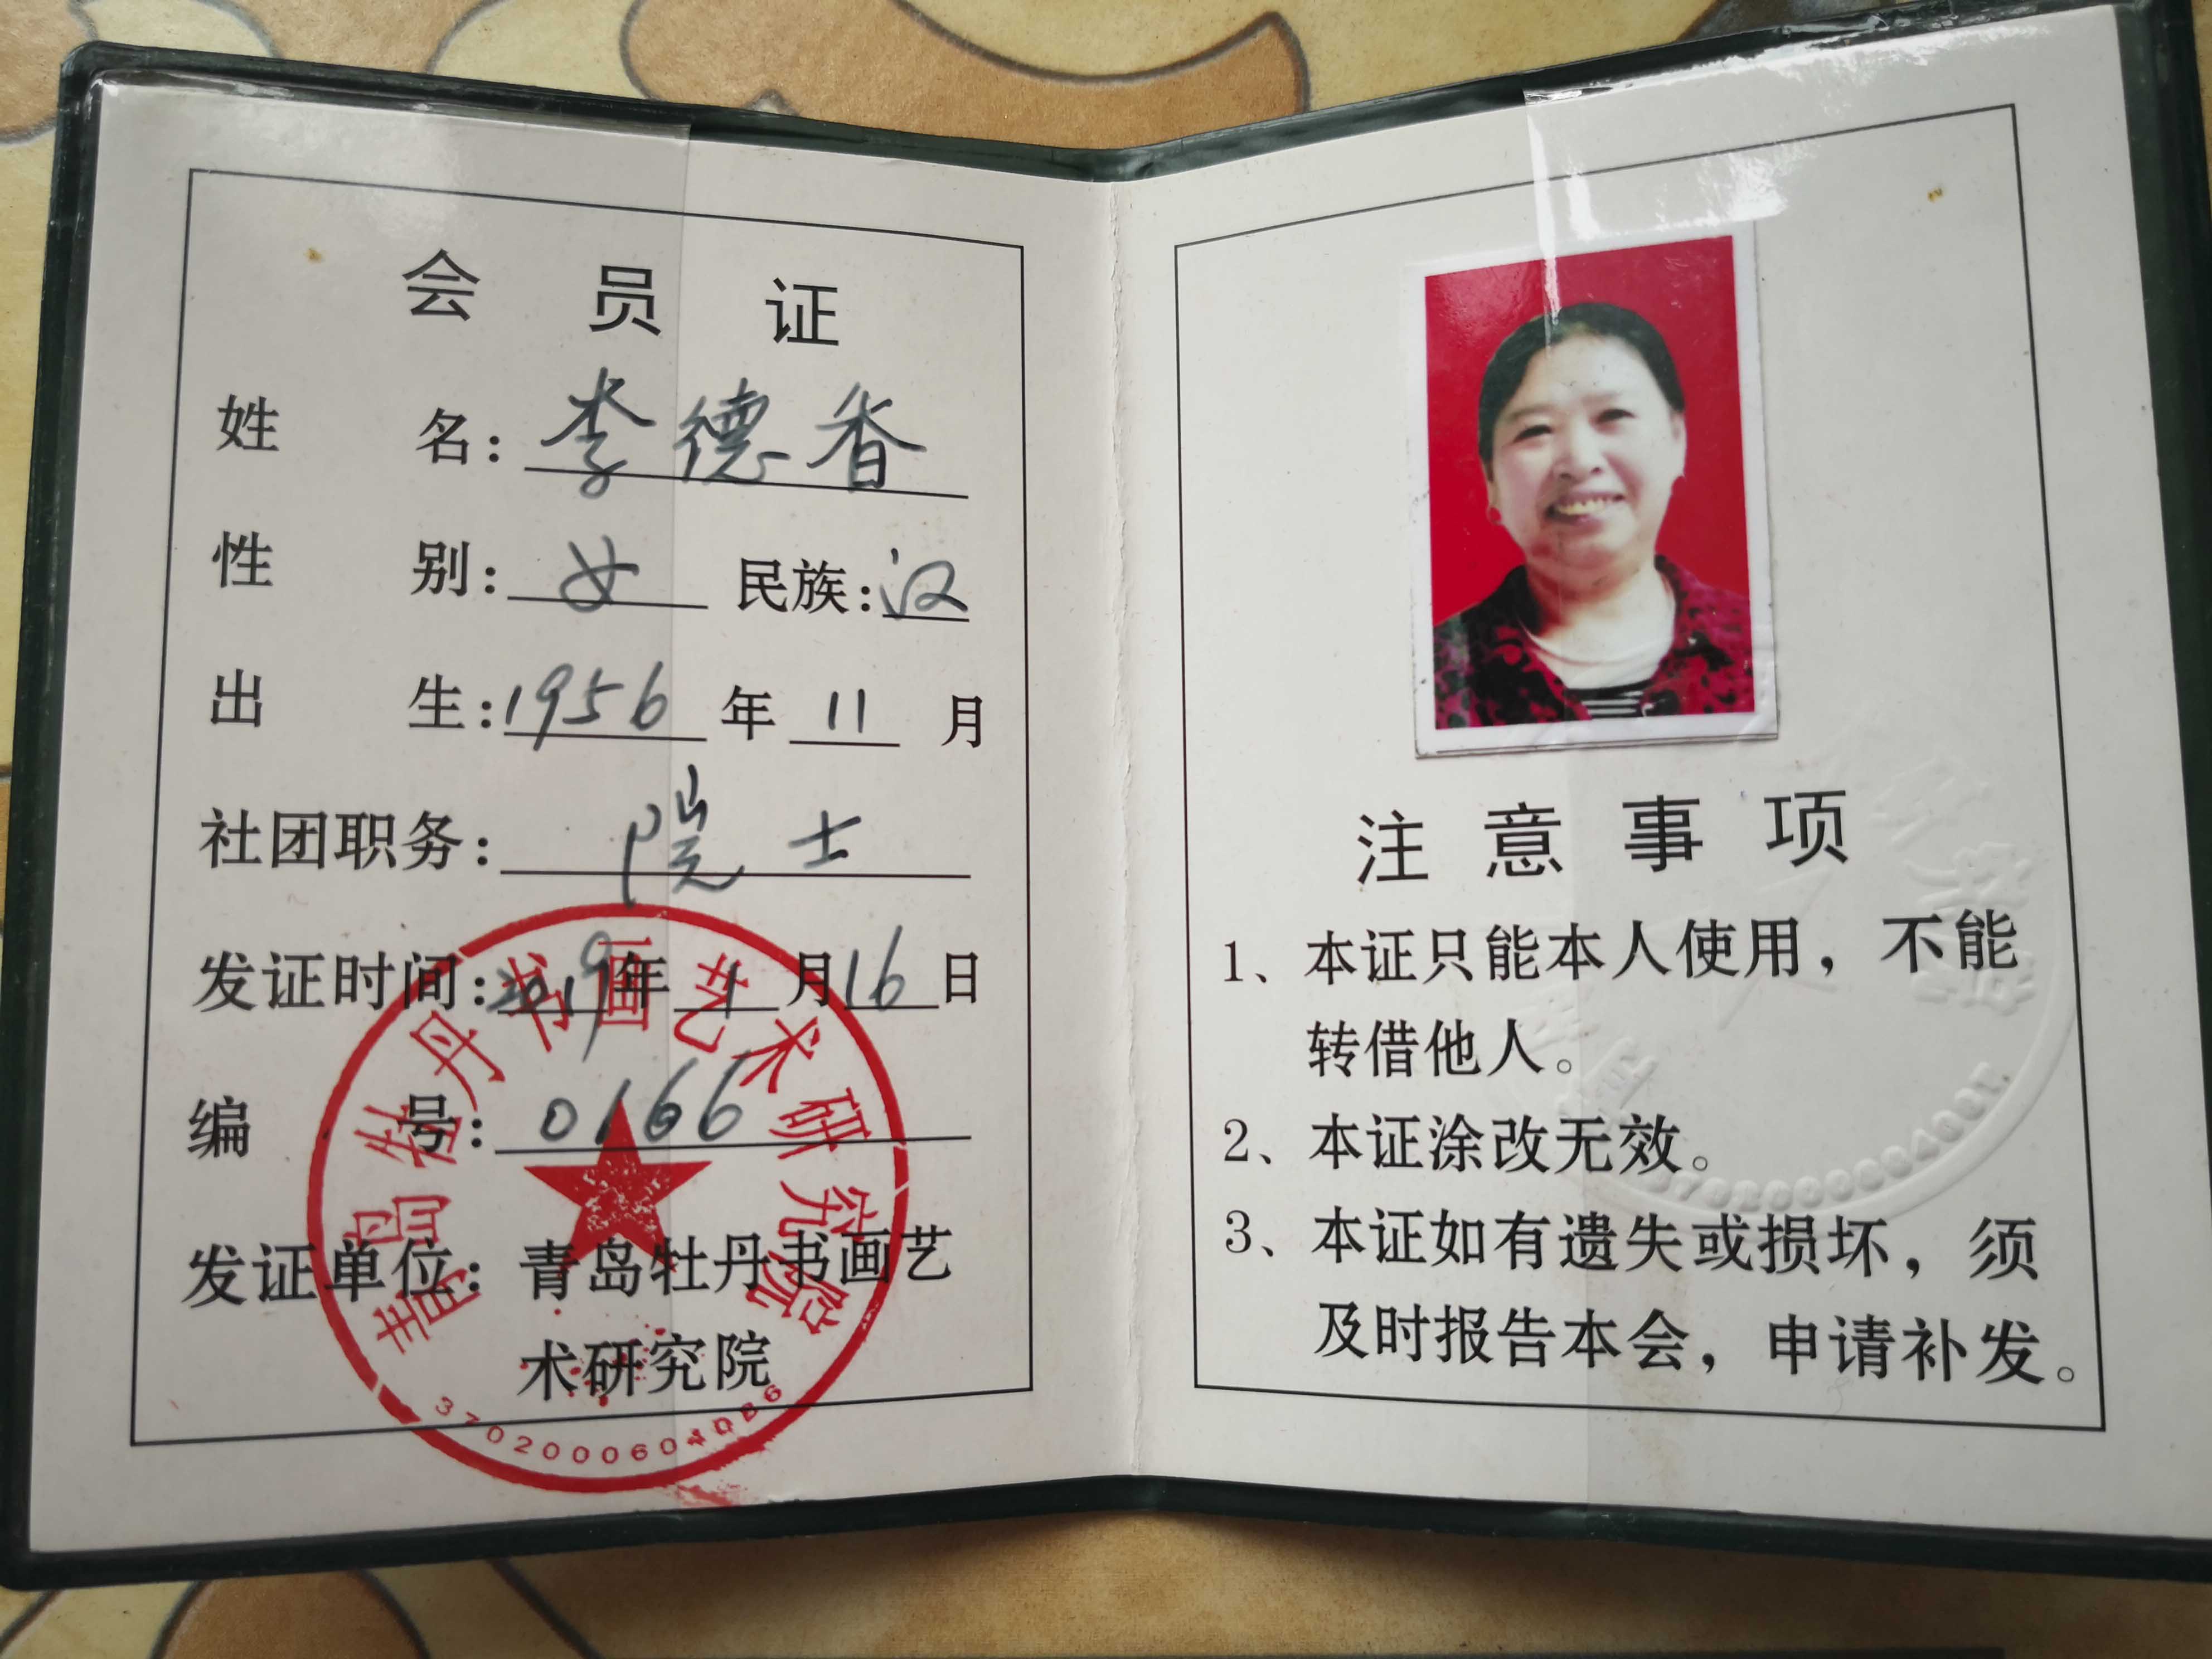 会员证
姓名：李德香
性别：女 民族：汉
出生：1956年11月
社团职务：院士
发证时间：2019年1月16日
编号：0166
发证单位：青岛牡丹书画艺
术研究院
青岛牡丹书画艺术研究院
注意事项
1、本证只能本人使用，不能
转借他人。
2、本证涂改无效。
3、本证如有遗失或损坏，须
及时报告本会，申请补发。